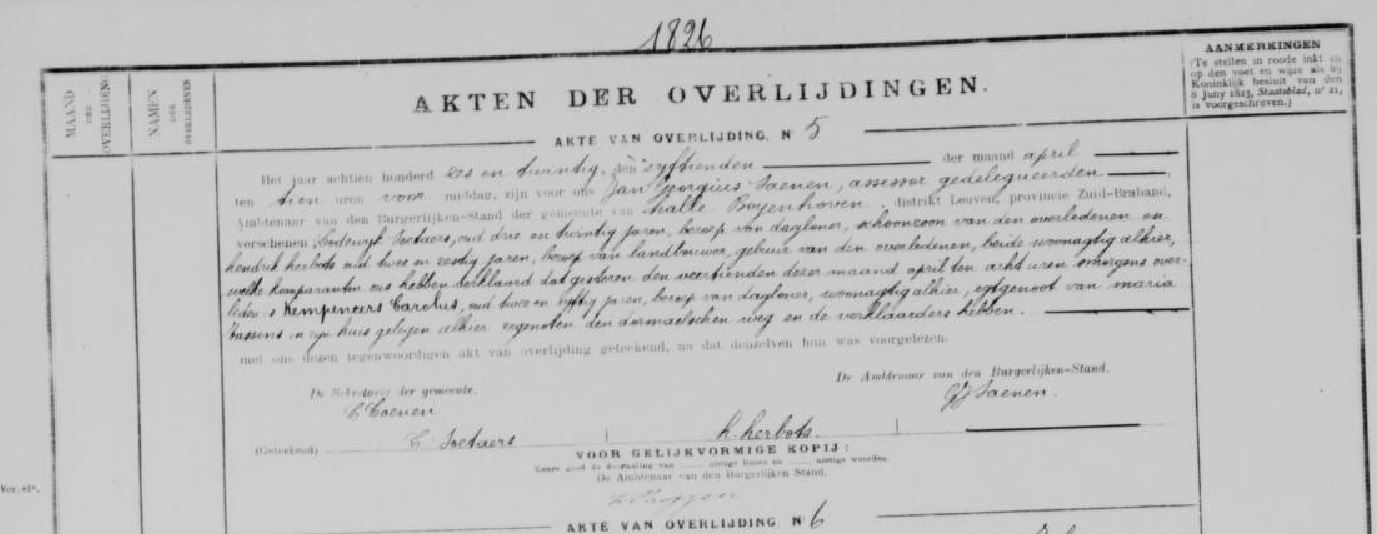 1826
AANMERKINGEN
(Te stellen in roode inkt en
op den voet en wijze als bij
Koninklijk besluit van den
8 juny 1823, Staatsblad, nr 21,
is voorgeschreven.)
MAAND
DER
OVERLIJDENS
NAMEN
DER
OVERLEDENEN
AKTEN DER OVERLIJDINGEN.
AKTE VAN OVERLIJDING, N° 5
Het jaar achtien honderd zes en twintig, den vyftienden der maand april
ten tien uren voor middag, zijn voor ons Jan Georgius Saenen, assessor gedelegueerden
Ambtenaar van den Burgerlijken-Stand der gemeente van halle Boyenhoven, distrikt Leuven, provincie Zuid-Braband,
verschenen Lodewyk Soetaers, oud drie en twintig jaren, beroep van dagloner, schoonzoon van den overledenen en
hendrik herbots oud twee en zestig jaren, beroep van landbouwer, gebuer van den overledenen, beide woonagtig alhier,
welke komparanten ons hebben verklaard dat gisteren den veertienden dezer maand april ten acht uren smorgens over-
leden is Kempeneers Carolus, oud twee en vyftig jaren, beroep van dagloner, woonagtig alhier, egtgenoot van maria
Tassens in zyn huis gelegen alhier regenoten den dormaelschen weg en de verklaarders hebben.
met ons dezen tegenwoordigen akt van overlijding geteekend, na dat denzelven hun was voorgelezen.
De Sekretaris der gemeente,
De Ambtenaar van den Burgerlijken-Stand,
C Coenen
GJ Saenen.
(Geteekend) C. Soetaers h. herbots.
VOOR GELIJKVORMIGE KOPIJ :
De Ambtenaar van den Burgerlijken Stand,
AKTE VAN OVERLIJDING, N° 6